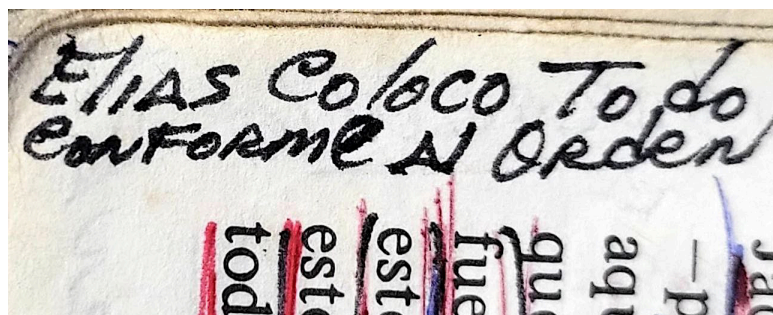 Elias Coloco Todo
Conforme Al Orden
tod
esto
est
fue
que
aqu
—p